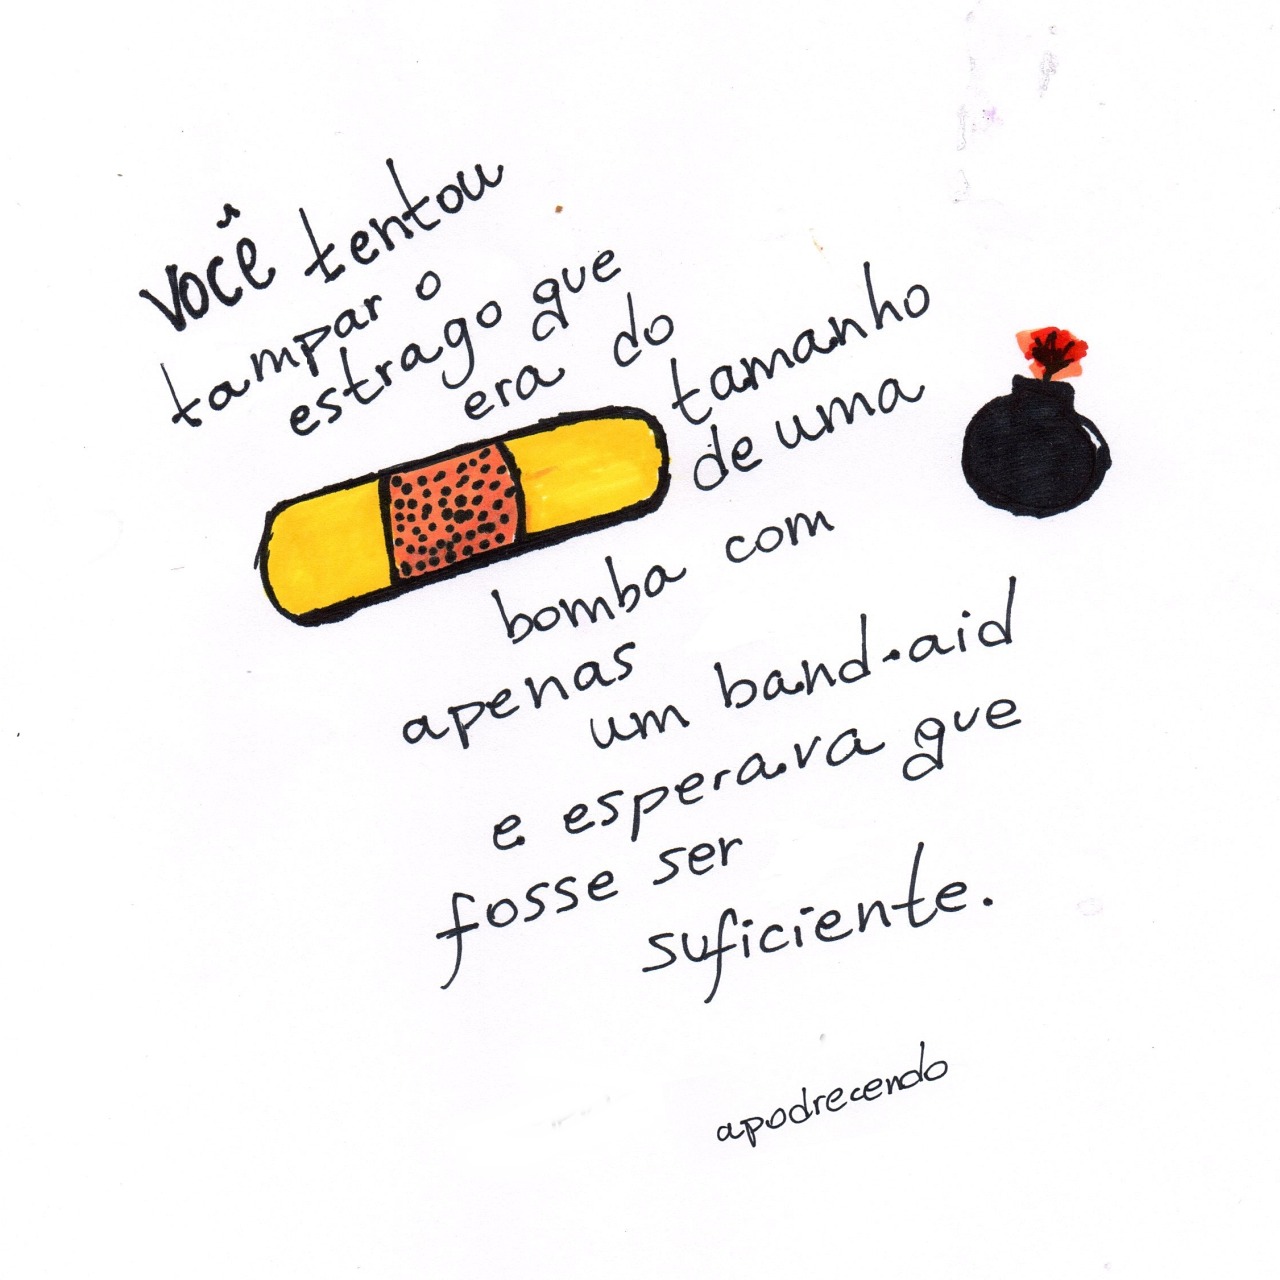 você tentou
tampar o
estrago que
era do
tamanho
de uma
bomba com
apenas
um band-aid
e esperava que
fosse ser
suficiente.
apodrecendo